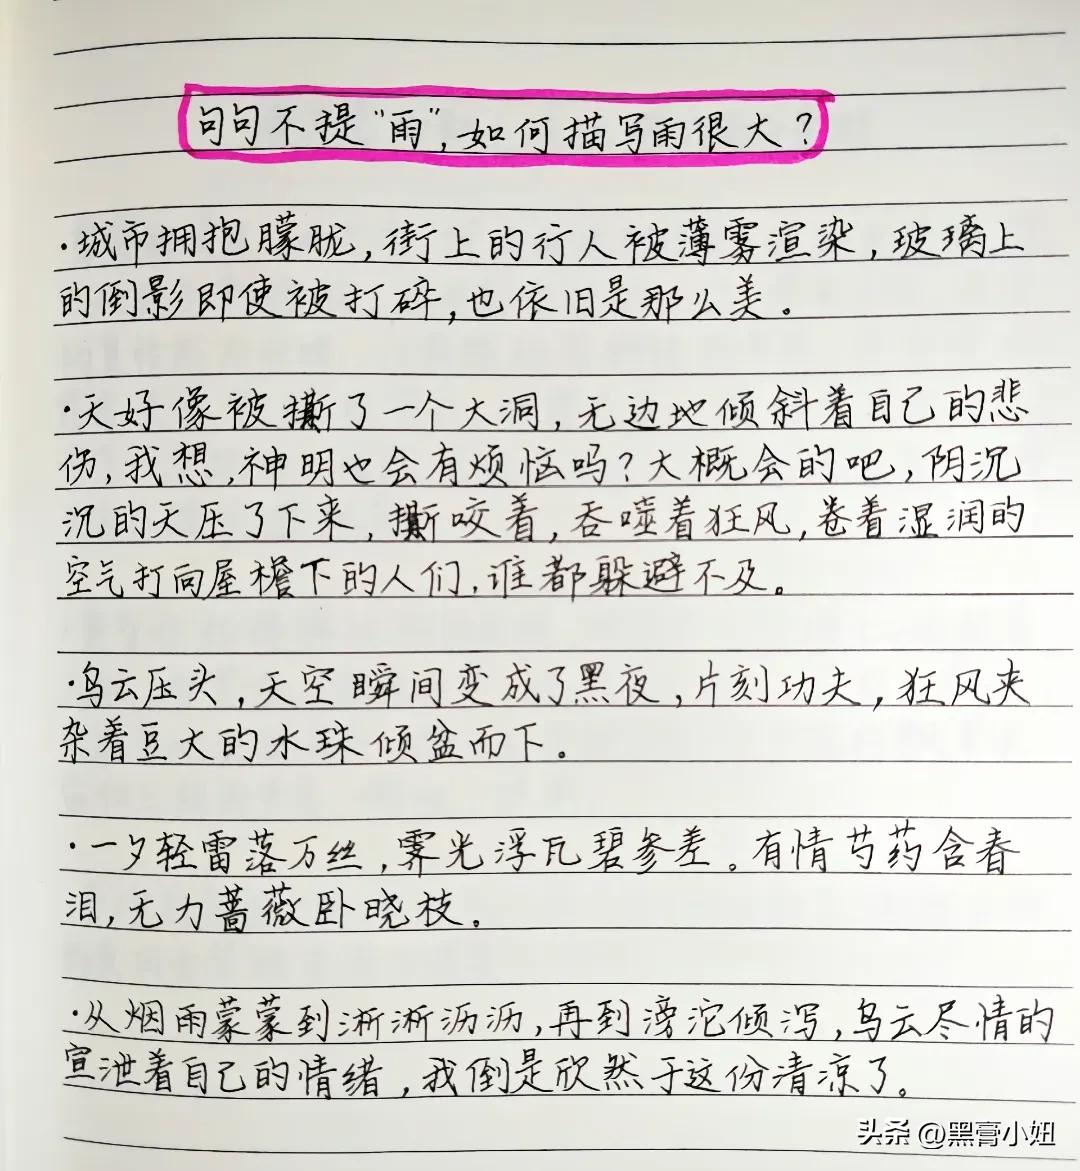 句句不提“雨”,如何描写雨很大?
·城市拥抱朦胧,街上的行人被薄雾渲染,玻璃上
的倒影即使被打碎,也依旧是那么美。
·天好像被撕了一个大洞,无边地倾斜着自己的悲
伤,我想,神明也会有烦恼吗?大概会的吧,阴沉
沉的天压了下来,撕咬着,吞噬着狂风,卷着湿润的
空气打向屋檐下的人们,谁都躲避不及。
·乌云压头,天空瞬间变成了黑夜,片刻功夫,狂风夹
杂着豆大的水珠倾盆而下。
·一夕轻雷落万丝,霁光浮瓦碧参差。有情芍药含春
泪,无力蔷薇卧晓枝。
·从烟雨蒙蒙到淅淅沥沥,再到滂沱倾泻,乌云尽情的
宣泄着自己的情绪,我倒是欣然于这份清凉了。
头条 @黑膏小妞